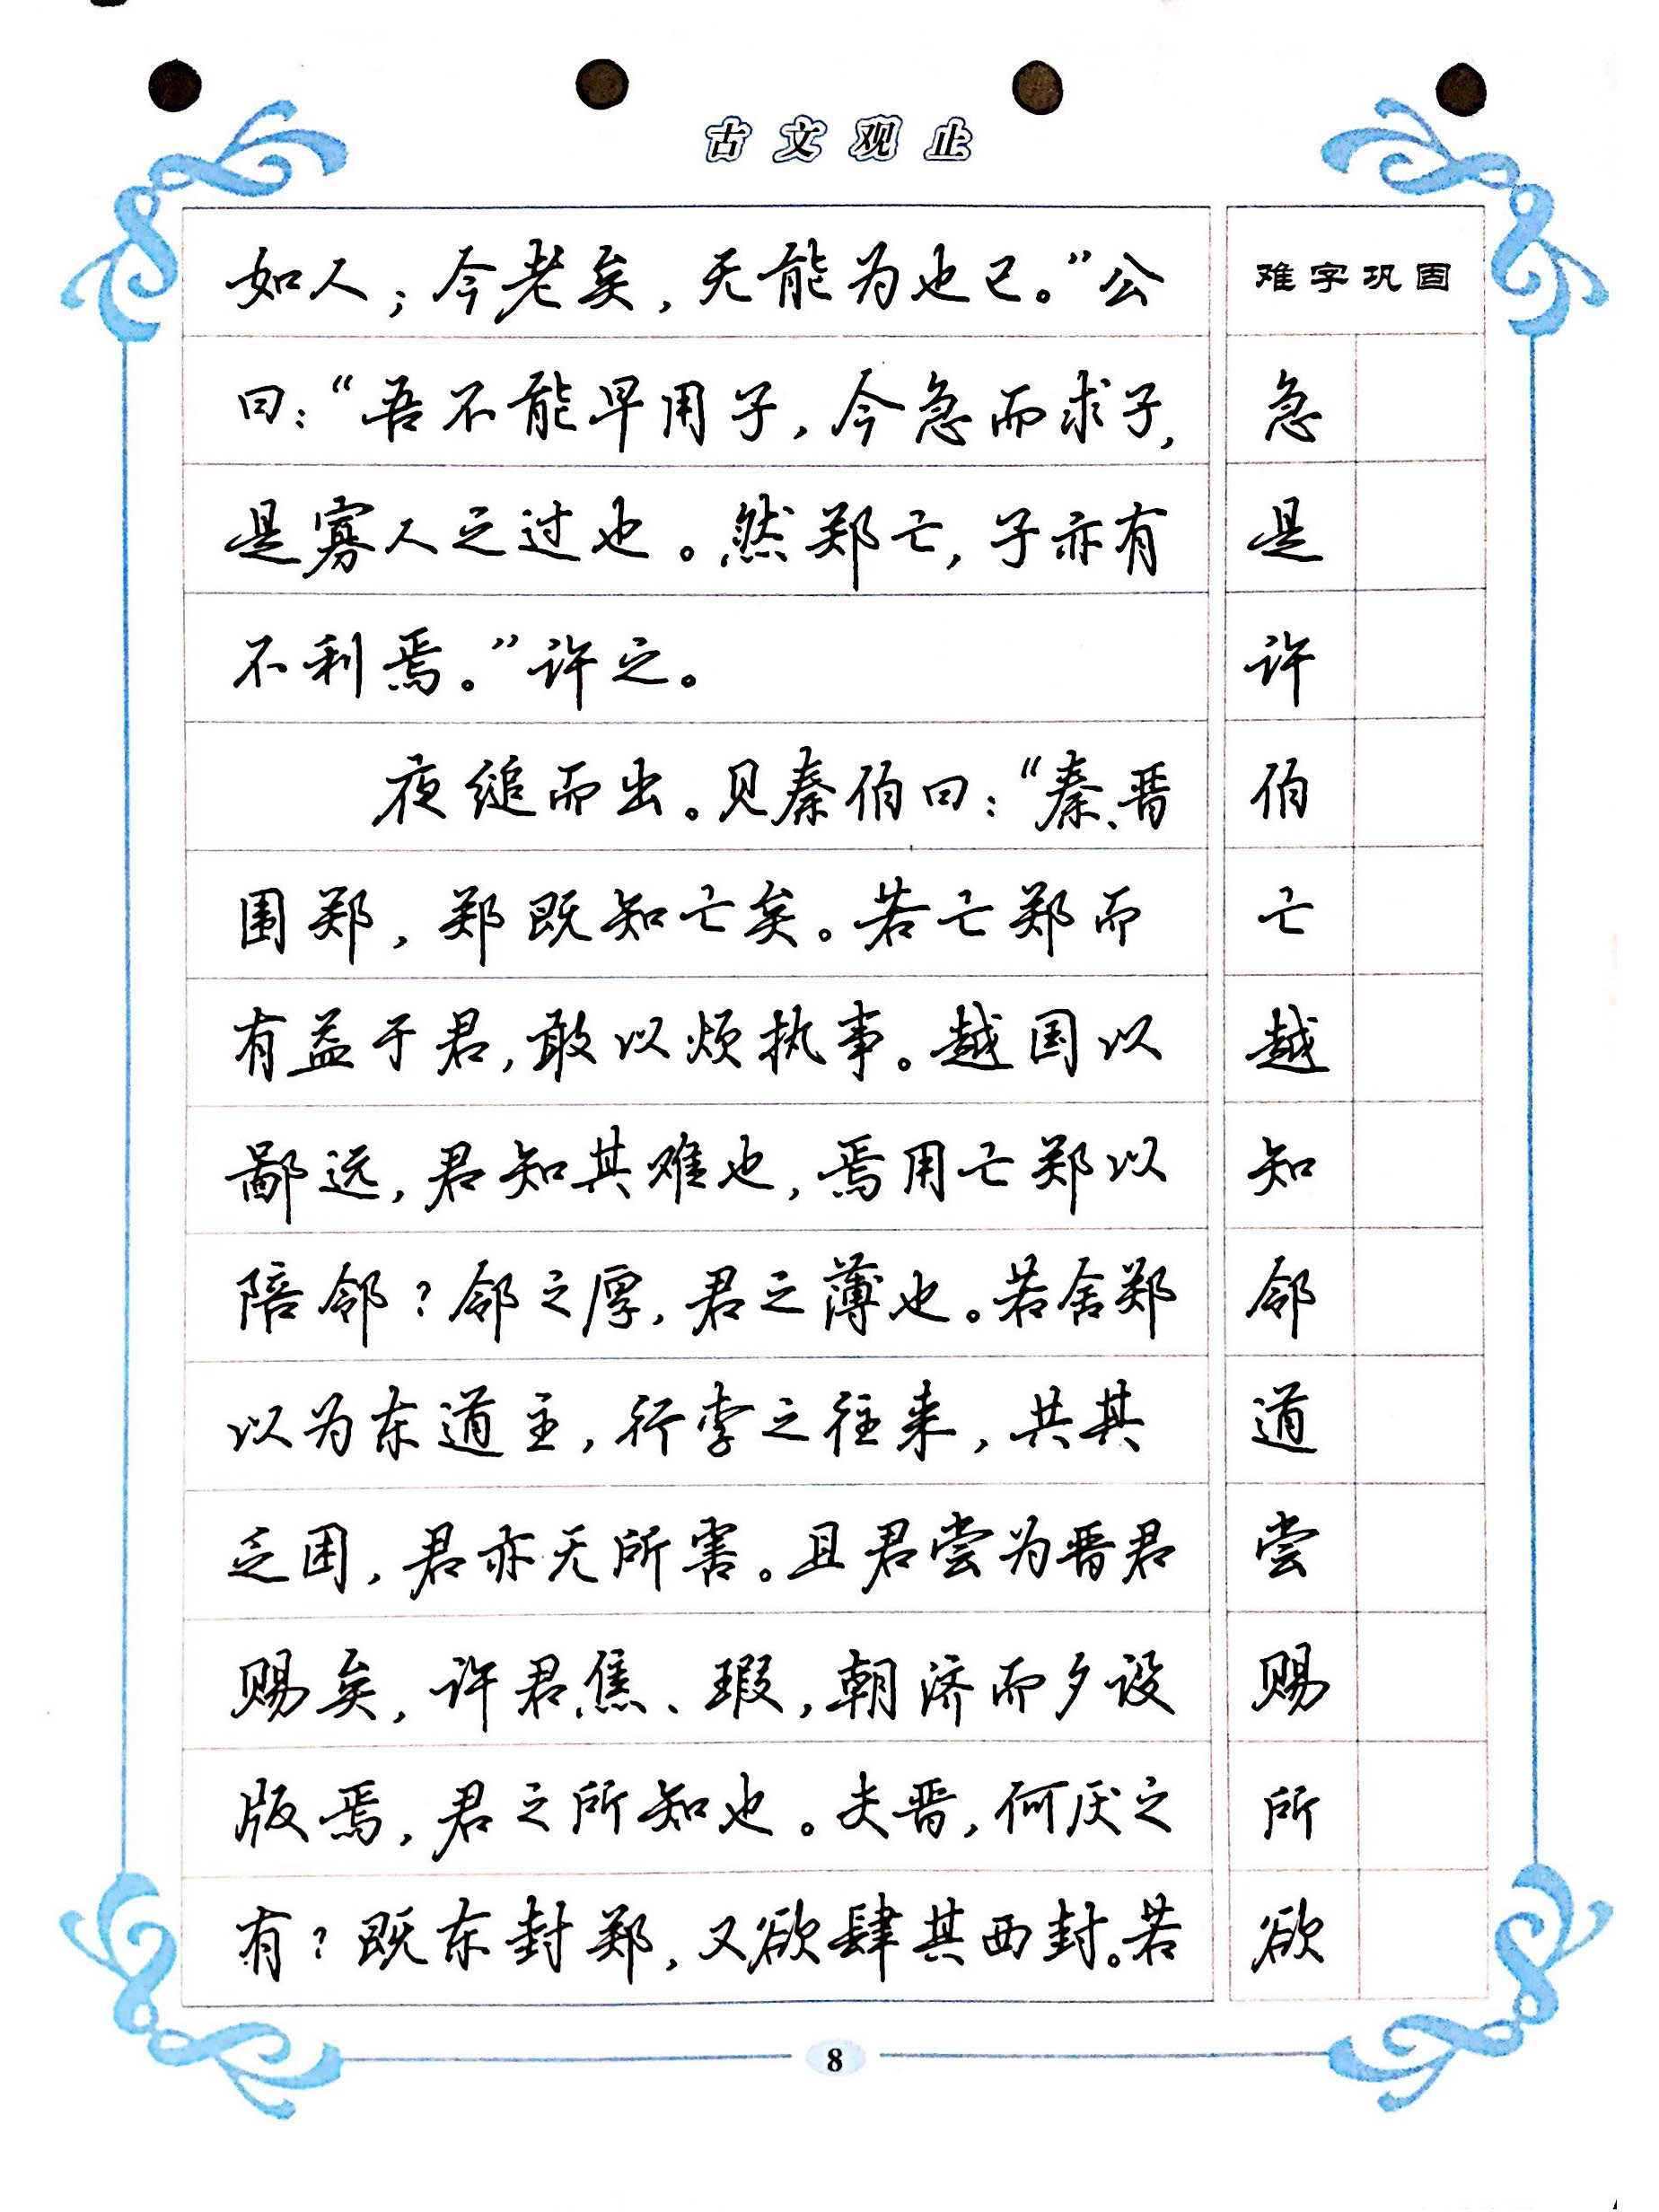 古文观止
如人；今老矣，无能为也已。”公
曰：“吾不能早用子，今急而求子，
是寡人之过也。然郑亡，子亦有
不利焉。”许之。
夜缒而出。见秦伯曰：“秦、晋
围郑，郑既知亡矣。若亡郑而
有益于君，敢以烦执事。越国以
鄙远，君知其难也，焉用亡郑以
陪邻？邻之厚，君之薄也。若舍郑
以为东道主，行李之往来，共其
乏困，君亦无所害。且君尝为晋君
赐矣，许君焦、瑕，朝济而夕设
版焉，君之所知也。夫晋，何厌之
有？既东封郑，又欲肆其西封。若
难字巩固
急
是
许
伯
亡
越
知
邻
道
尝
赐
所
欲
8